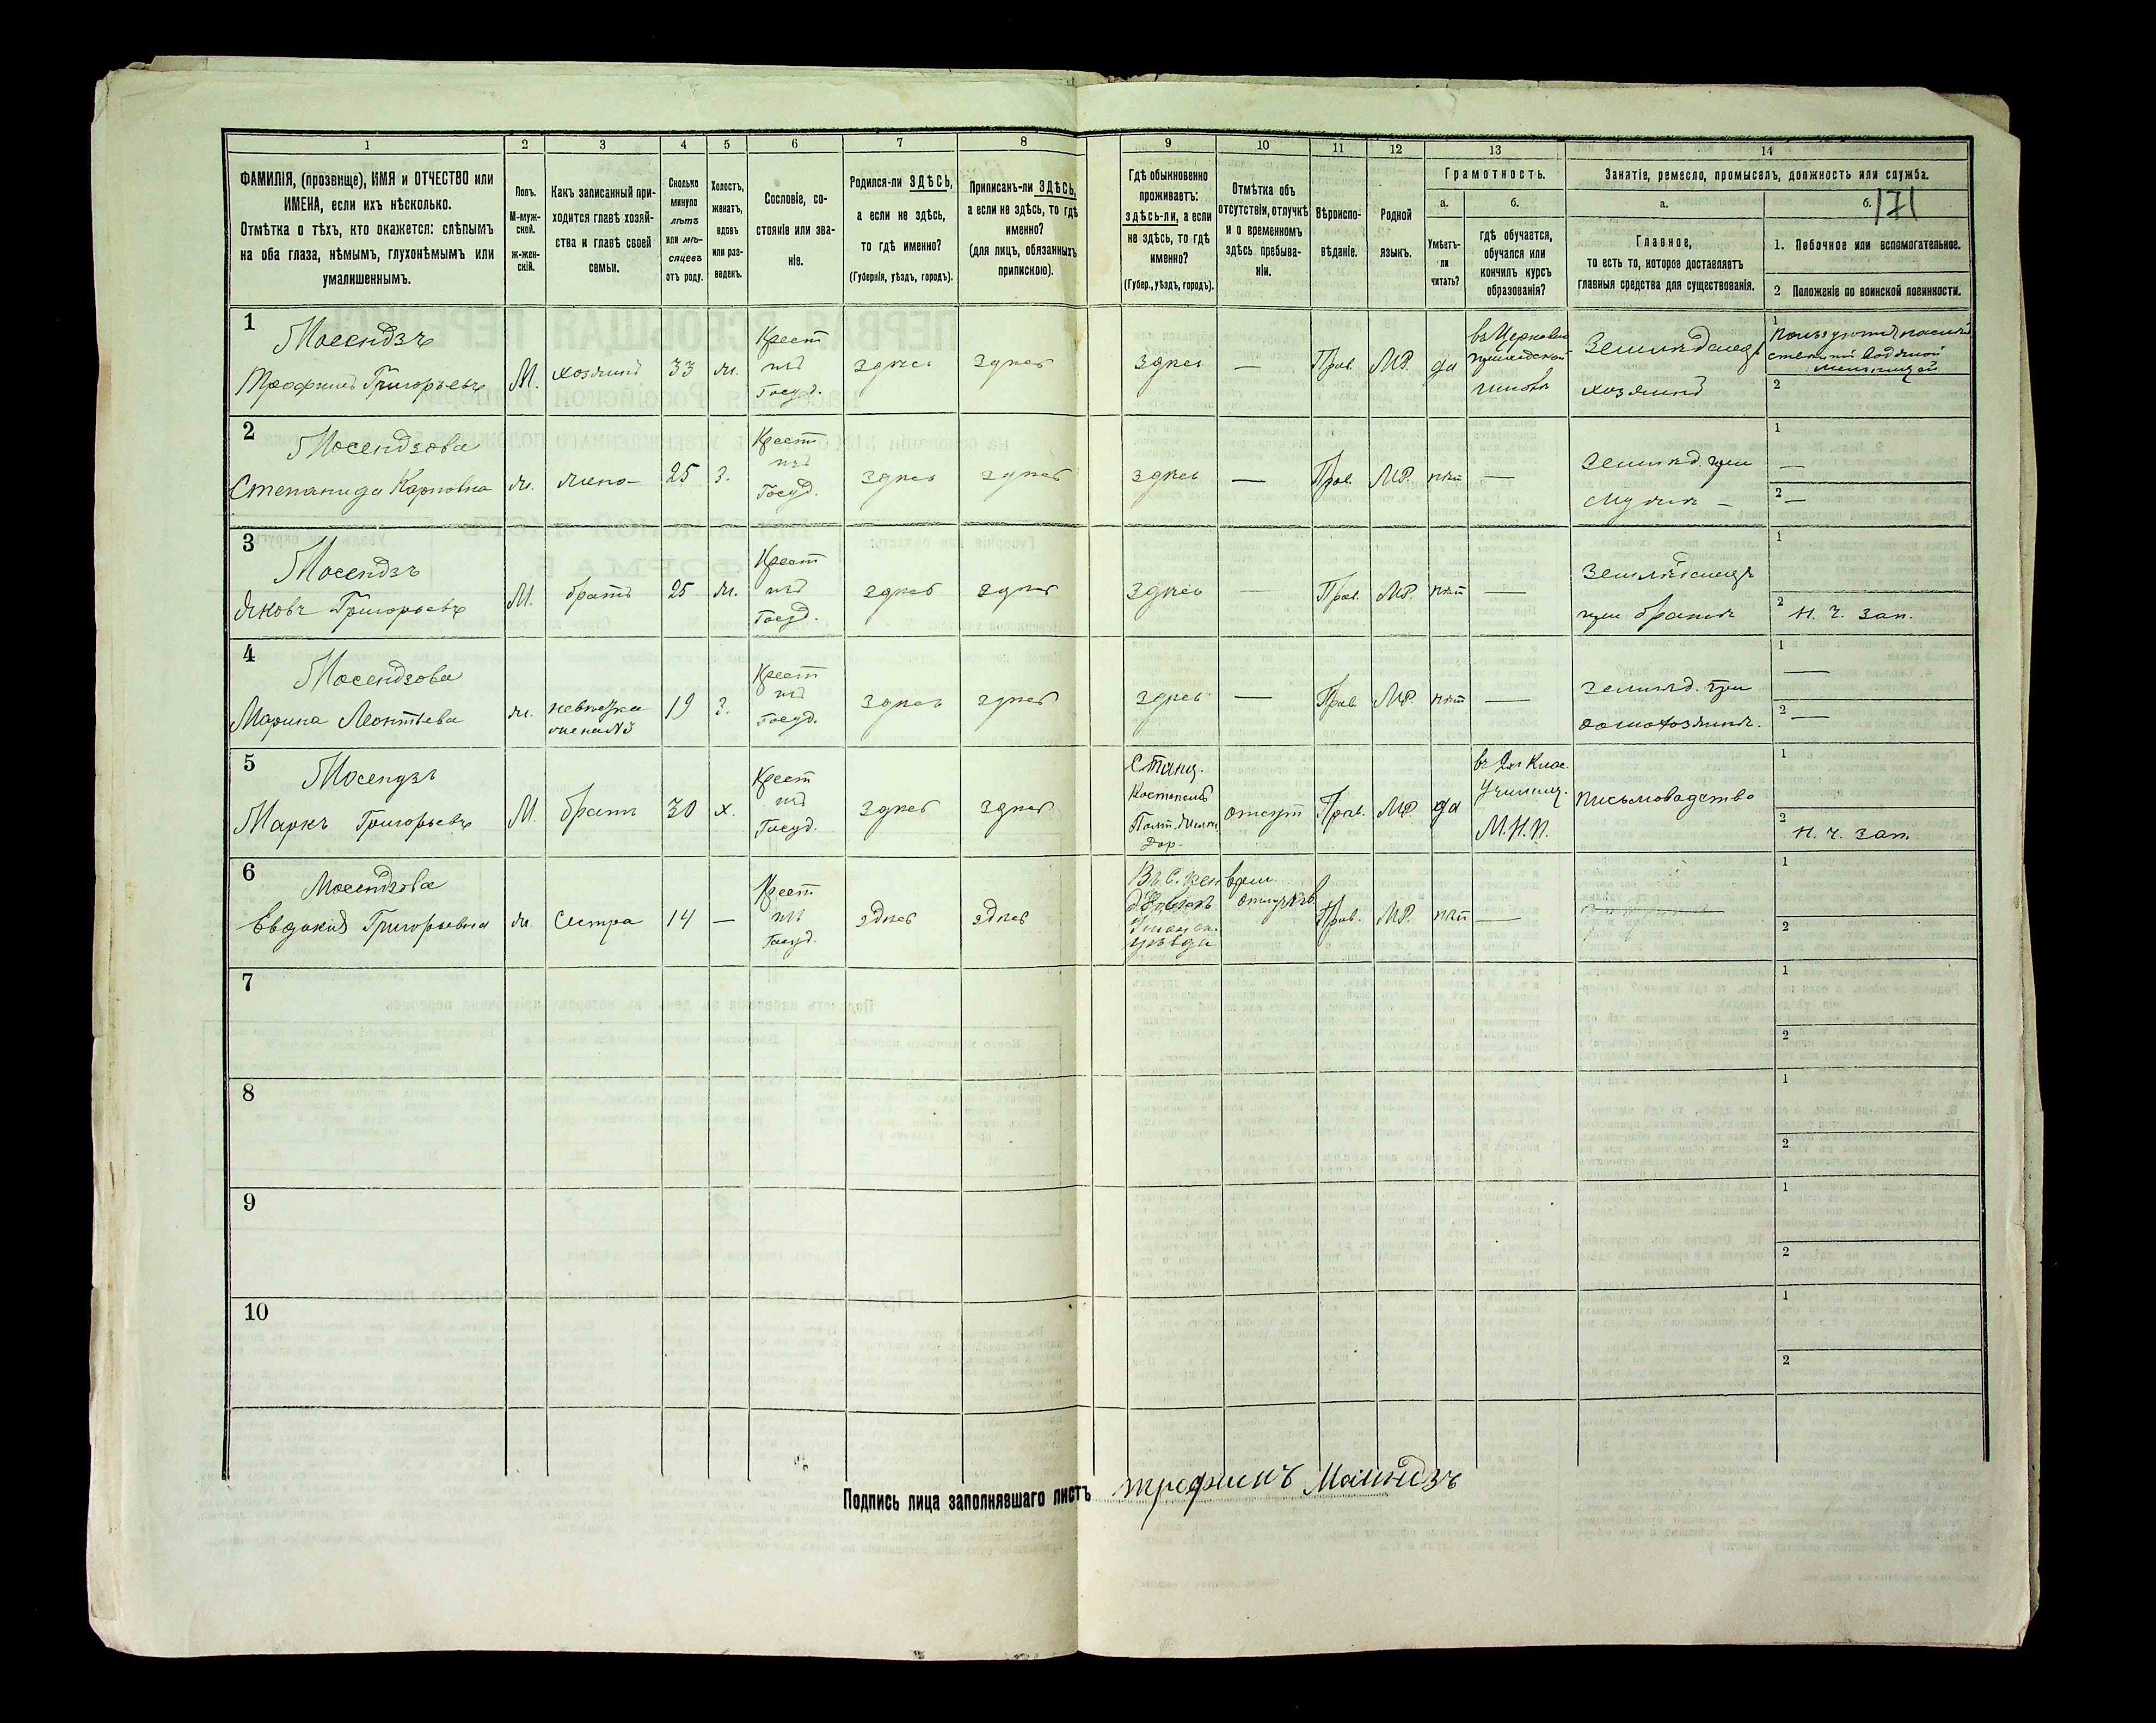 171
1 2 3 4 5 6 7 8 9 10 11 12 13 14
ФАМИЛІЯ, (прозвище), ИМЯ и ОТЧЕСТВО или
ИМЕНА, если ихъ нѣсколько.
Отмѣтка о тѣхъ, кто окажется: слѣпымъ
на оба глаза, нѣмымъ, глухонѣмымъ или
умалишеннымъ.
Полъ.
М-муж-
ской.
ж-жен-
скій.
Какъ записанный при-
ходится главѣ хозяй-
ства и главѣ своей
семьи.
Сколько
минуло
лѣтъ
или мѣ-
сяцевъ
отъ роду.
Холостъ,
женатъ,
вдовъ
или раз-
веденъ.
Сословіе, со-
стояніе или зва-
ніе.
Родился-ли ЗДѢСЬ,
а если не здѣсь,
то гдѣ именно?
(Губернія, уѣздъ, городъ).
Приписанъ-ли ЗДѢСЬ,
а если не здѣсь, то гдѣ
именно?
(для лицъ, обязанныхъ
припискою).
Гдѣ обыкновенно
проживаетъ:
здѣсь-ли, а если
не здѣсь, то гдѣ
именно?
(Губер., уѣздъ, городъ).
Отмѣтка объ
отсутствіи, отлучкѣ
и о временномъ
здѣсь пребыва-
ніи.
Вѣроиспо-
вѣданіе.
Родной
языкъ.
Грамотность.
а.
Умѣетъ-
ли
читать?
б.
гдѣ обучается,
обучался или
кончилъ курсъ
образованія?
Занятіе, ремесло, промыселъ, должность или служба.
а.
Главное,
то есть то, которое доставляетъ
главныя средства для существованія.
б.
1. Побочное или вспомогательное.
2 Положеніе по воинской повинности.
1
Мосендзъ
Трофимъ Григорьевъ
М.
хозяинъ
33
ж.
Крест
изъ
Госуд.
здѣсь
здѣсь
здѣсь
—
Прав.
МР.
да
въ Церковно
приходской
Земледѣлецъ
хозяинъ
1
2
2
Мосендзова
Степанида Карповна
ж.
жена
25
З.
Крест
изъ
Госуд.
здѣсь
здѣсь
здѣсь
—
Прав.
МР.
нѣт
—
Землед. при
мужѣ
1
—
2
—
3
Мосендзъ
Яковъ Григорьевъ
М.
братъ
25
ж.
Крест
изъ
Госуд.
здѣсь
здѣсь
здѣсь
—
Прав.
МР.
нѣт
—
Земледѣлецъ
при братѣ
1
2
Н. Ч. Зап.
4
Мосендзова
Марина Леонтьева
ж.
невѣстка
жена №3
19
З.
Крест
изъ
Госуд.
здѣсь
здѣсь
здѣсь
—
Прав.
МР.
нѣт
—
землед. при
домохозяинѣ.
1
—
2
—
5
Мосендзъ
Маркъ Григорьевъ
М.
братъ
30
х.
Крест
изъ
Госуд.
здѣсь
здѣсь
Станц.
отсут
Прав.
МР.
да
въ 2х Клас.
Училищ.
М.Н.П.
письмоводство
1
2
Н. Ч. Зап.
6
Мосендзова
Евдокія Григорьевна
ж.
Сестра
14
—
Крест
изъ
Госуд.
здѣсь
здѣсь
уѣзда
Прав.
МР.
нѣт
—
1
2
7
1
2
8
1
2
9
1
2
10
1
2
Подпись лица заполнявшаго листъ Трофимъ Мосендзъ